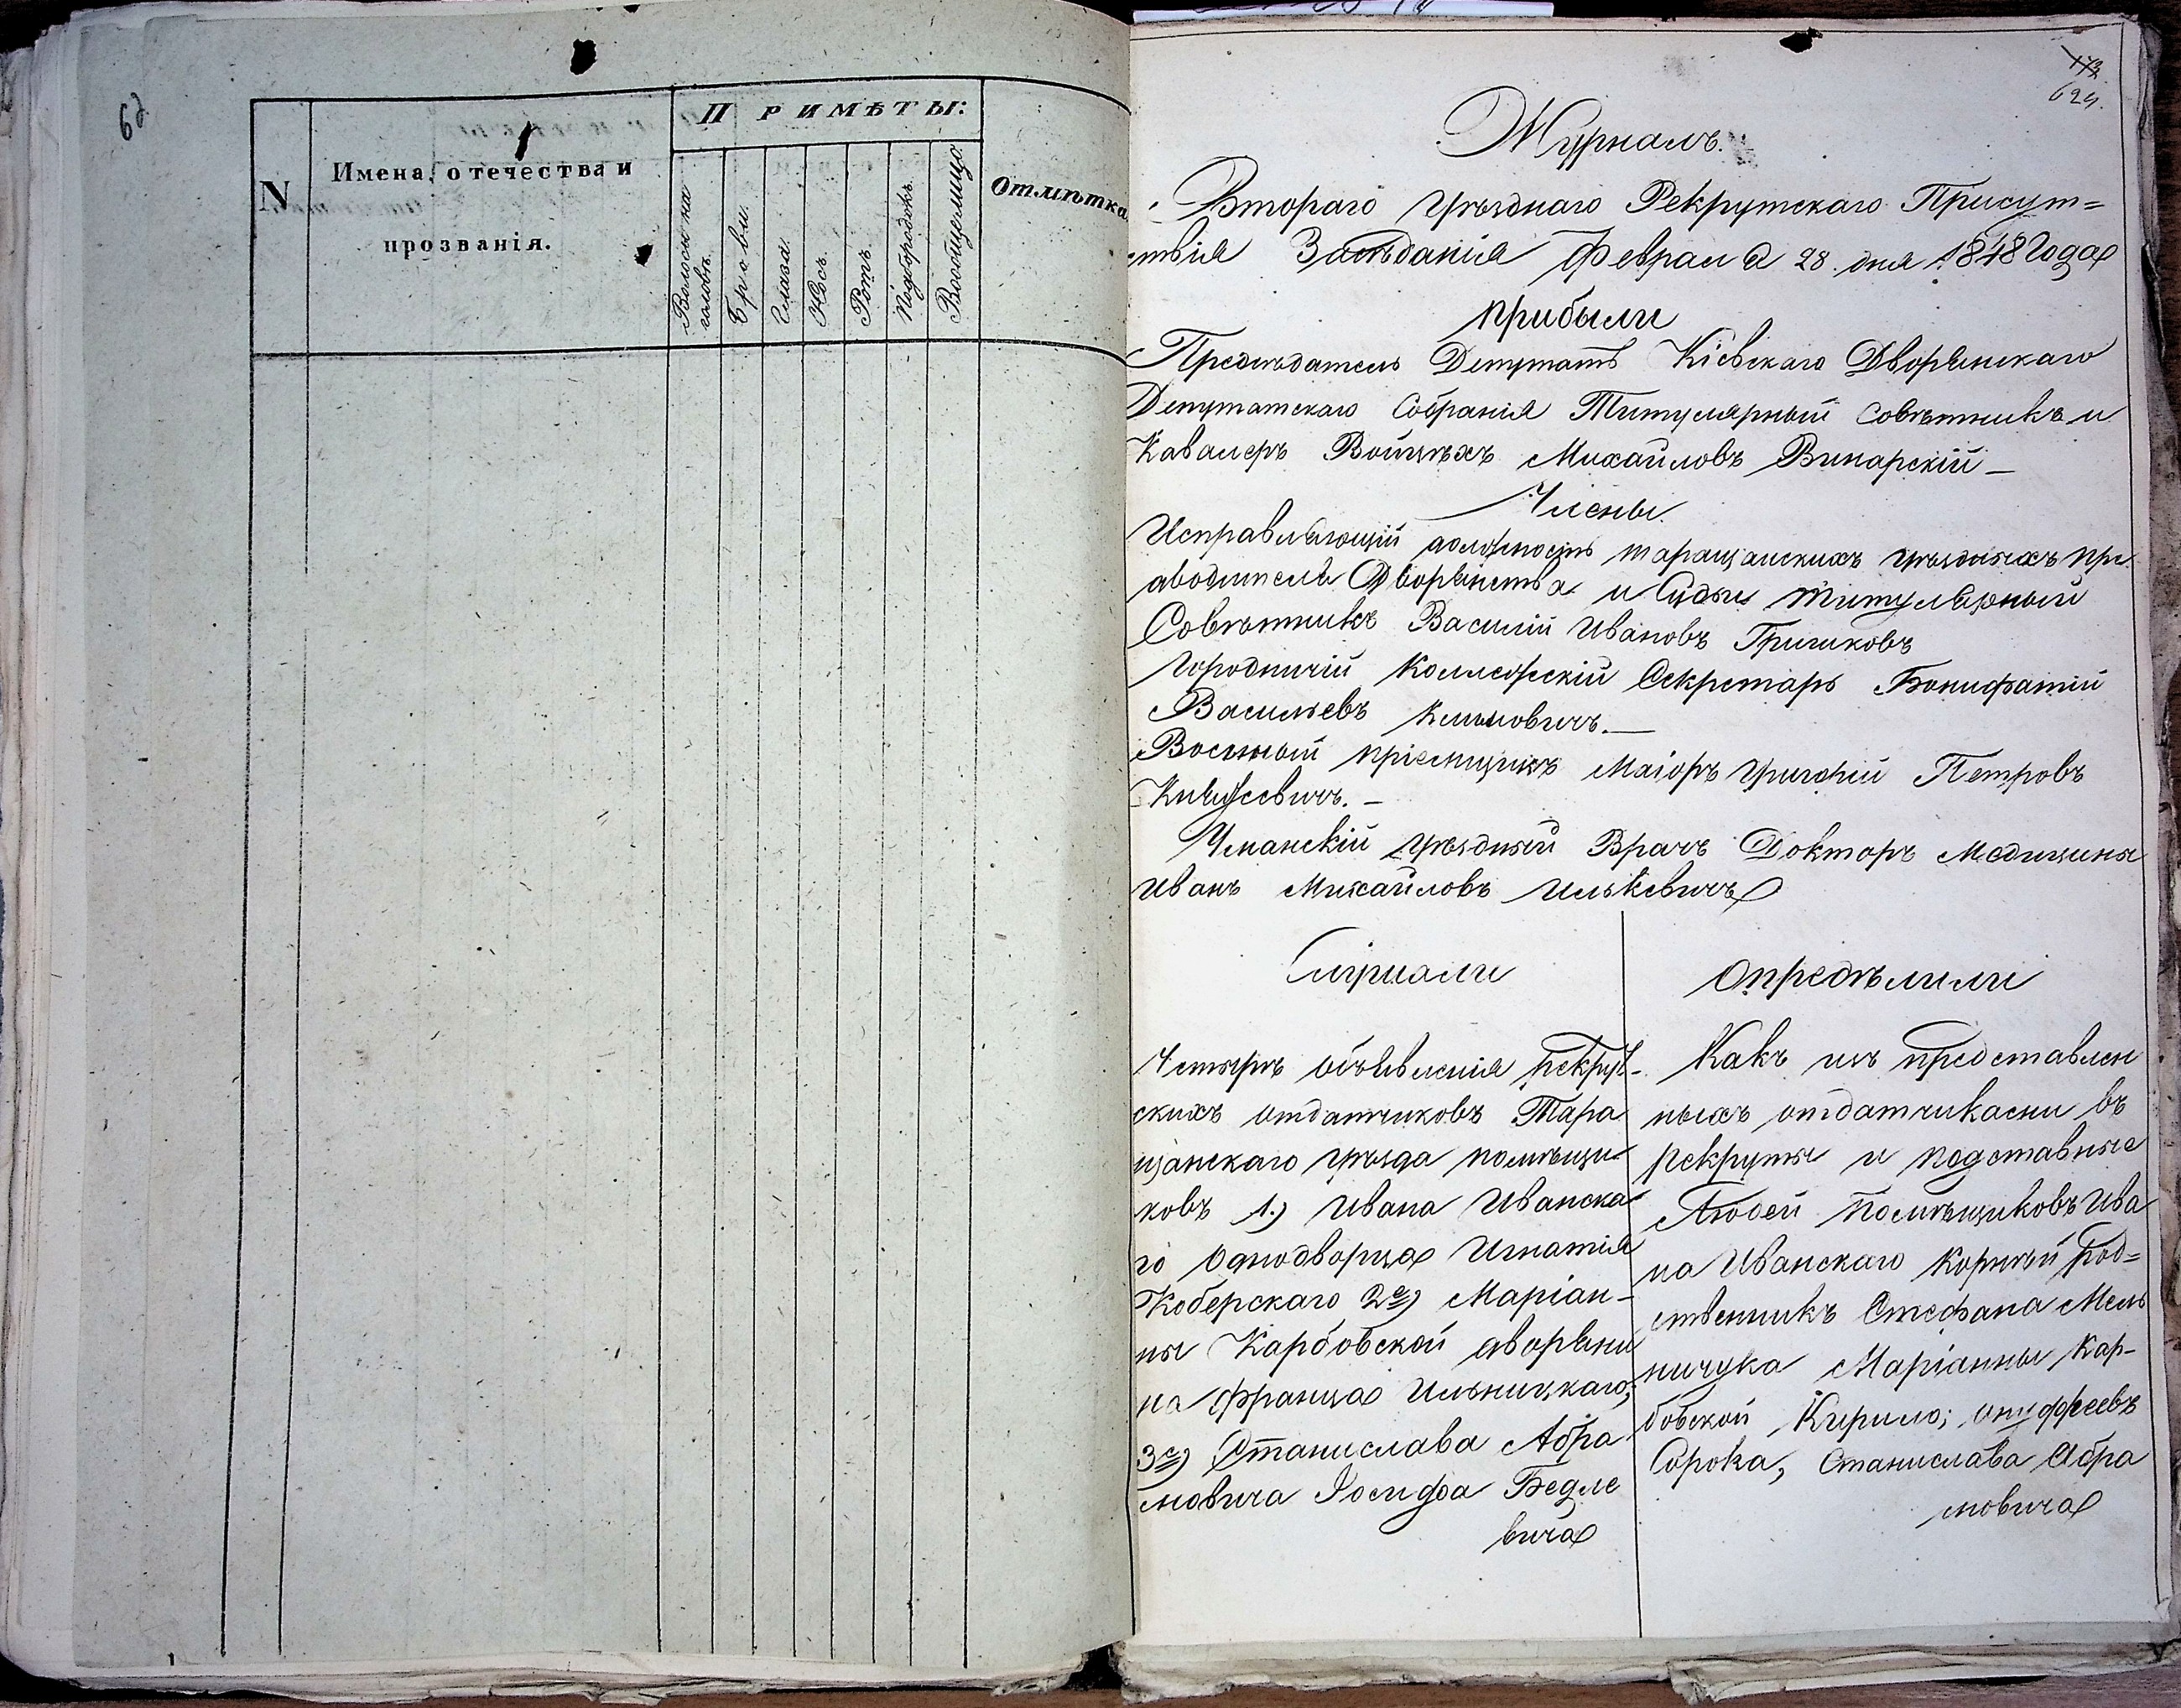 62
N
Имена, отечества и
прозванія.
ПРИМѢТЫ:
Волоса на
головѣ.
Брови.
Глаза.
Носъ.
Ротъ.
Подбородокъ.
Вообще лицо.
Отмѣтка
173
624.
Журналъ.
Втораго Уѣзднаго Рекрутскаго Присут=
ствія Засѣданія Февраля 28 дня 1848 Года
Прибыли
Предсѣдатель Депутатъ Кіевскаго Дворянскаго
Депутатскаго Собранія Титулярный Совѣтникъ и
Кавалеръ Войцѣхъ Михайловъ Винарскій —
Члены.
Исправляющій должность таращанскихъ уѣздныхъ пре
аводителя Дворянства и Судьи Титулярный
Совѣтникъ Василій Ивановъ Гришковъ
Городничій Коллежскій Секретарь Бонифатій
Васильевъ —
Военный пріемщикъ Маіоръ Григорій Петровъ
Княжевичъ. —
Уманскій уѣздный Врачъ Докторъ Медицины
Иванъ Михайловъ Илькевичъ
Слушали
Четыре объявленія рекрут-
скихъ отдатчиковъ Тара
щанскаго уѣзда помѣщи
ковъ 1.) Ивана Иванска
го Однодворца Игнатія
Коберскаго 2е) Маріан-
ны Карбовской дворяни
на Франца Ильницкаго;
3е) Станислава Абра
мовича Іосифа Бедле
вича
Опредѣлили
Какъ изъ представлен
ныхъ отдатчиками въ
рекруты и подставные
Людей помѣщиковъ Ива
на Иванскаго Корнѣй род=
ственникъ Стефана Мель
ничука Маріанны Кар-
бовской Кирило; Онуффеевъ
Сорока, Станислава Абра
мовича